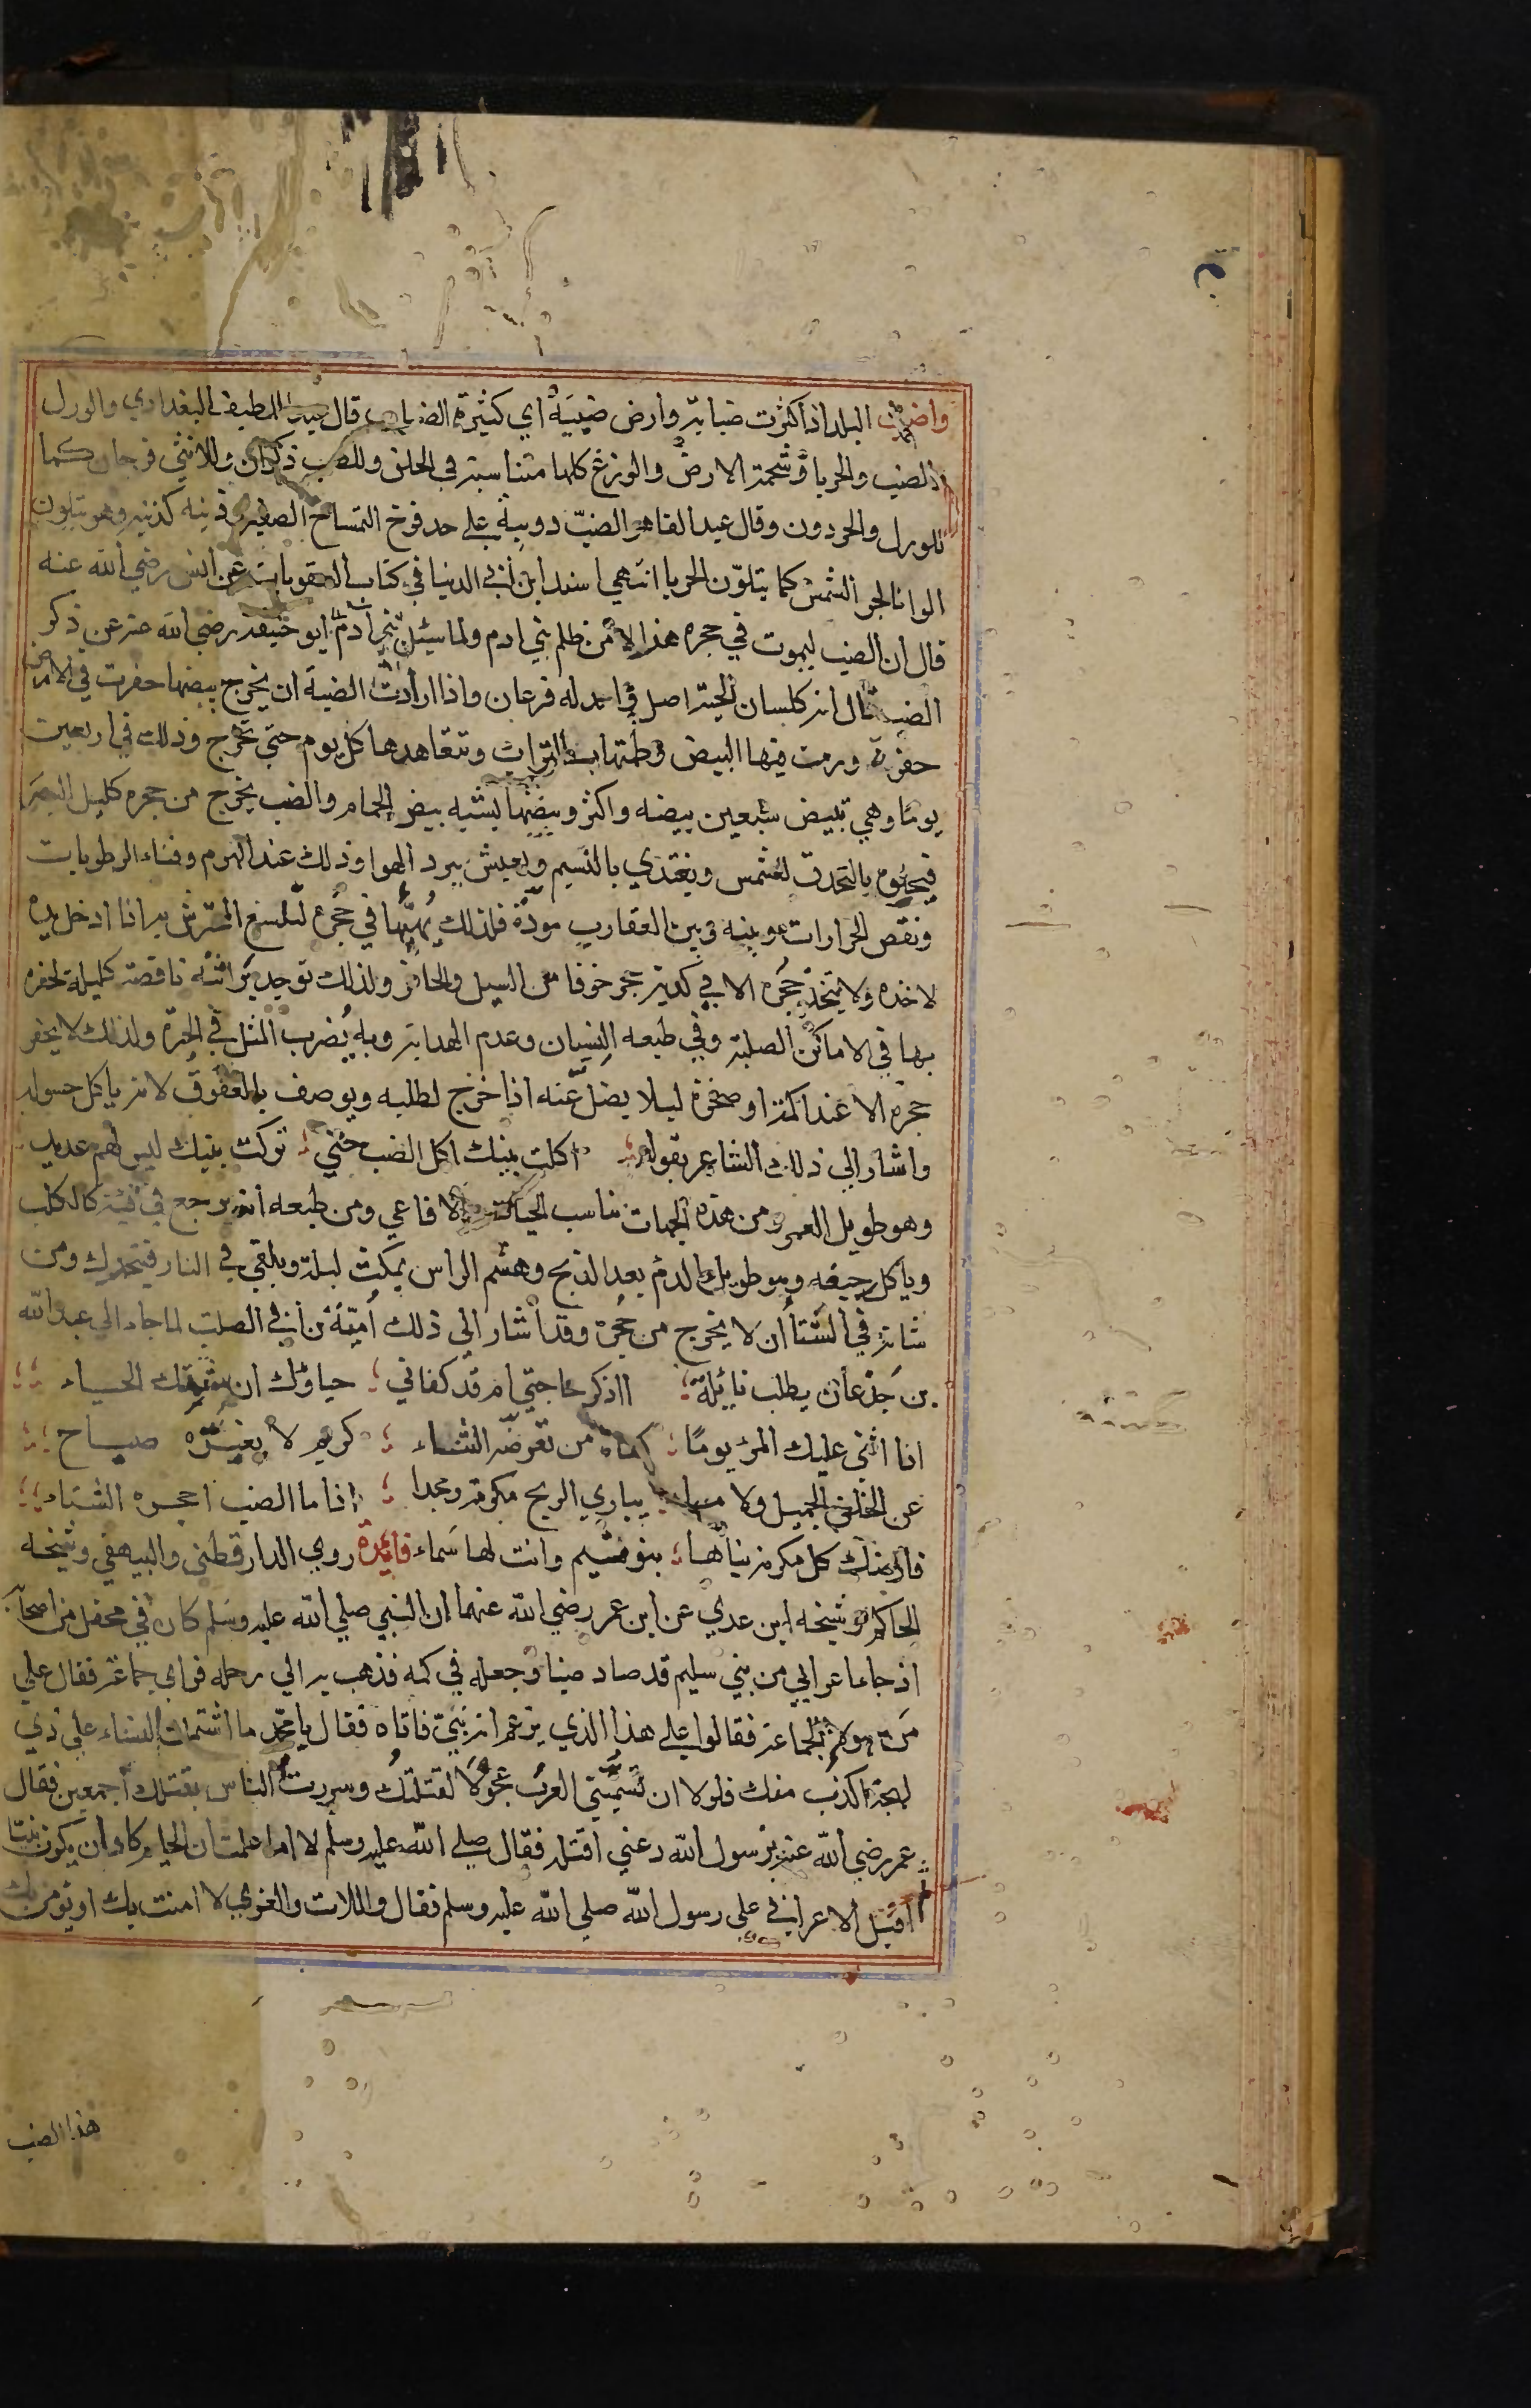 واضبت البلد اذا كثرت ضبابه وارض ضببة اي كثيرة الضباب قال عبد اللطيف البغدادي والورل
والضب والحربا وشحمة الارض والوزغ كلها متناسبة في الخلق وللضب ذكران وللانثي فرجان كما
للورل والحردون وقال عبد القاهر الضبّ دويبة علي حد فرخ التمساح الصغير وذنبه كذنبه وهو يتلون
الوانا لحر الشمس كما يتلوّن الحربا انتهي اسند ابن أبي الدنيا في كتاب العقوبات عن انس رضي الله عنه
قال ان الضب ليموت في حجره هذلا من ظلم بني ادم ولما سئل ابو حنيفة رضي الله عنه عن ذكر
الضب قال انه كلسان الحية اصل واحد له فرعان واذا ارادت الضبة ان يخرج بيضها حفرت في الارض
حفرة ورمت فيها البيض وطمتها بالتراب وتتعاهدها كل يوم حتي تخرج وذلك في اربعين
يوما وهي تبيض سبعين بيضه واكثر وبيضها يشبه بيض الحمام والضب يخرج من حجره كليل البصر
فيجلوه بالتحدق للشمس ويغتذي بالنسيم ويعيش ببرد الهوا وذلك عند الهرم وفناء الرطوبات
ونقص الحرارات وبينه وبين العقارب مودّة فلذلك يُهيّها في حُجره لتلسع المتحرش به اذا ادخل يده
لاخذه ولا يتخذ حجره الا في كدية حجر خوفا من السيل والحافر ولذلك توجد براثنه ناقصة كليلة لحفره
بها في الاماكن الصلبة وفي طبعه النسيان وعدم الهداية وبه يُضرب المثل في الحيرة ولذلك لا يحفر
حجره الا عند اكمة او صخرة ليلا يضل عنه اذا خرج لطلبه ويوصف بالعقوق لانه ياكل حسوله
واشار الي ذلك الشاعر بقوله اكلت بنيك اكل الضب حتي تركت بنيك ليس لهم عديد
وهو طويل العمر ومن هذه الجهات يناسب الحيات والافاعي ومن طبعه انه يرجع في قيئه كالكلب
وياكل رجيعه وهو طويل الدم بعد الذبح وهشم الراس يمكث ليلة ويلقي في النار فيتحرك ومن
شانه في الشتا ان لا يخرج من حجره وقد اشار الي ذلك أميّة بن أبي الصلت لما جاء الي عبد الله
بن جَذعان يطلب نايلة ااذكر حاجتي ام قد كفاني حياؤك ان شيمتك الحياء
اذا اثني عليك المرؤ يومًا كفاه من تعرضه الثناء كريم لا يغيّره صباح
عن الخلق الجميل ولا مساء يباري الريح مكرمة ومجدا اذا ما الضب احجره الشتاء
فارضك كل مكرمة بناها بنو تيم وانت لها سَماء فايدة روي الدار قطني والبيهقي وشيخه
الحاكم وشيخه ابن عدي عن ابن عمر رضي الله عنهما ان النبي صلي الله عليه وسلم كان في محفل من اصحابه
اذ جا اعرابي من بني سليم قد صاد ضبا وجعله في كمه فذهب به الي رحله فراي جماعة فقال علي
من هولاء الجماعة فقالوا علي هذا الذي يزعم انه نبي فاتاه فقال يا محمد ما اشتملت النساء علي ذي
لهجة اكذب منك فلولا ان تسميّني العربُ عجولا لقتلتك وسررت الناس بقتلك اجمعين فقال
عمر رضي الله عنه يرسول الله دعني اقتله فقال صلي الله عليه وسلم لا اما علمت ان الحليم كاد ان يكون نبيا
ثم اقبل الاعرابي علي رسول الله صلي الله عليه وسلم فقال واللات والعزي لا امنت بك او يومن بك
هذا الضب